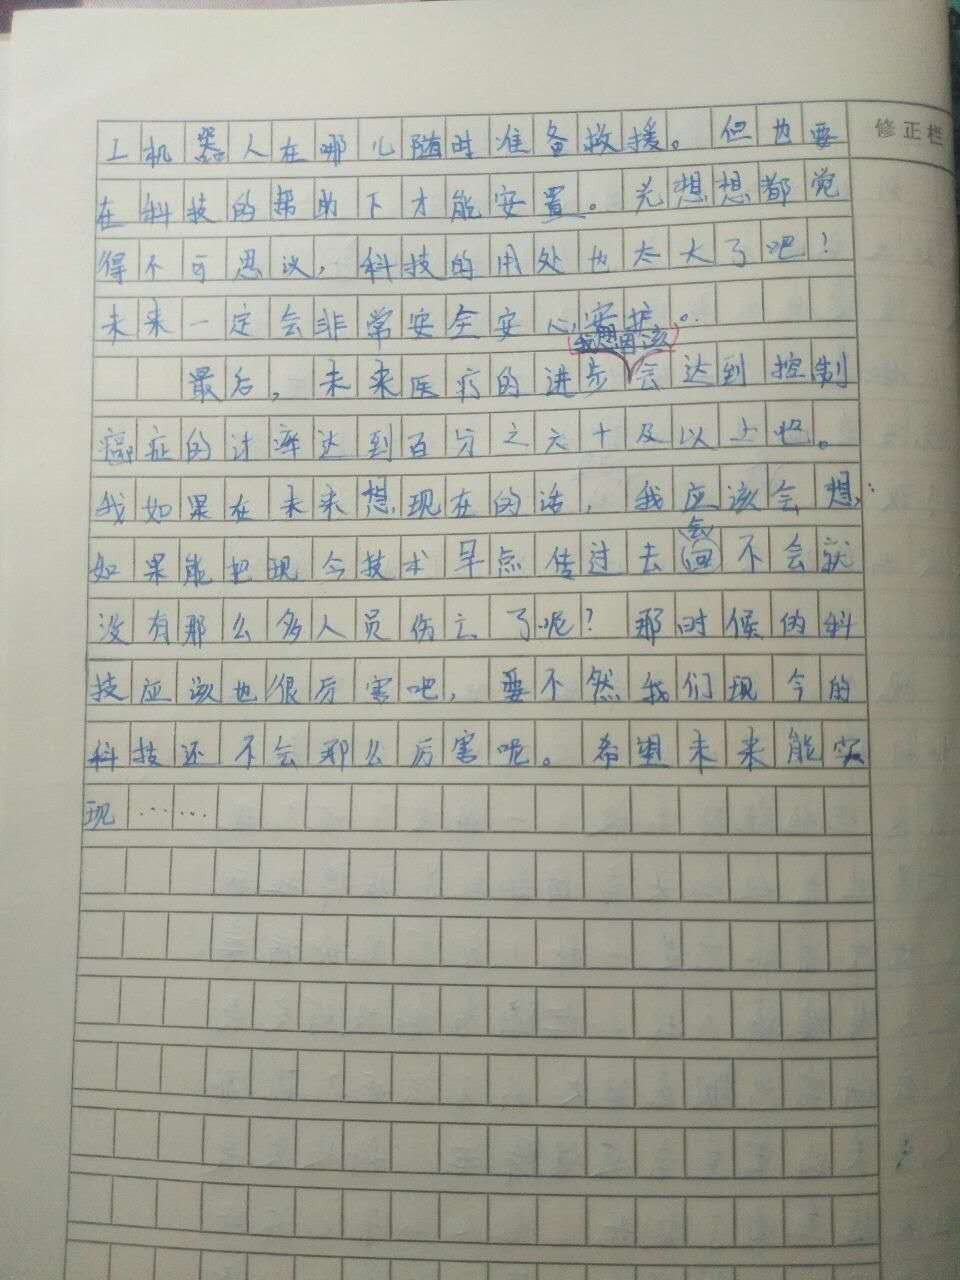 修正栏
工机器人在哪儿随时准备救援。但也要
在科技的帮助下才能安置。光想想都觉
得不可思议，科技的用处也太大了吧！
未来一定会非常安全安心
我想因该
最后，未来医疗的进步会达到控制
癌症的达到百分之六十及以上吧。
我如果在未来想现在的话，我应该会想：
会
如果能把现今技术早点传过去回不会就
没有那么多人员伤亡了呢？那时候的科
技应该也很厉害吧，要不然我们现今的
科技还不会那么厉害呢。希望未来能实
现……